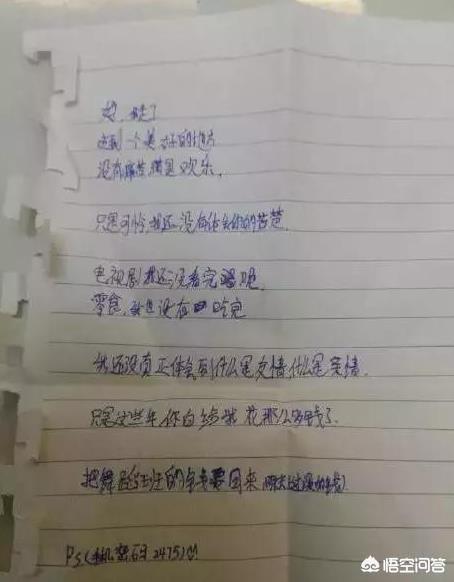 妈,我走了
去到一个美好的地方
没有痛苦满是欢乐,
只是可惜,我还没有体会你的苦楚
电视剧我还没看完呢,
零食,我也没有吃完
我还没真正体会到什么是友情什么是爱情.
只是这些年,你白给我花那么多钱了.
把舞蹈班的钱要回来
Ps(手机密码2475)
悟空问答